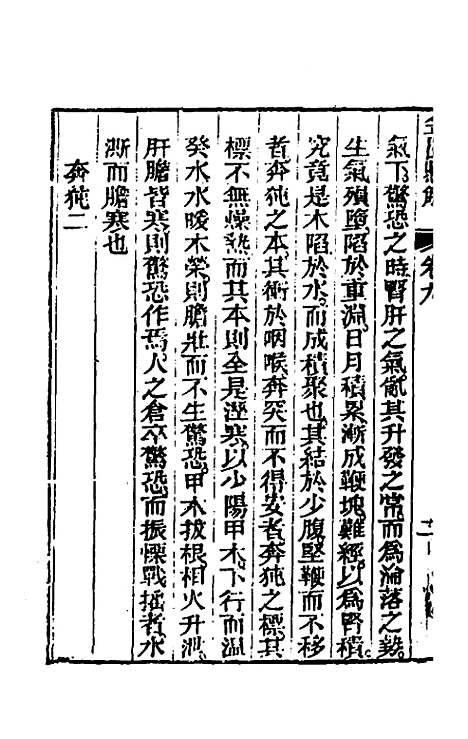 卷九
氣下驚恐之時腎肝之氣亂其升發之常而爲淪落之勢
生氣殞墮陷於重淵日月積累漸成鞕塊難經以爲腎積
究竟是木陷於水而成積聚也其結於少腹堅鞕而不移
者奔㹠之本其衝於咽喉奔突而不得安者奔㹠之標其
標不無燥熱而其本則全是溼寒以少陽甲木下行而溫
癸水水暖木榮則膽壯而不生驚恐甲木拔根相火升泄
肝膽皆寒則驚恐作焉人之倉卒驚恐而振慄戰搖者水
漸而膽寒也
奔㹠二